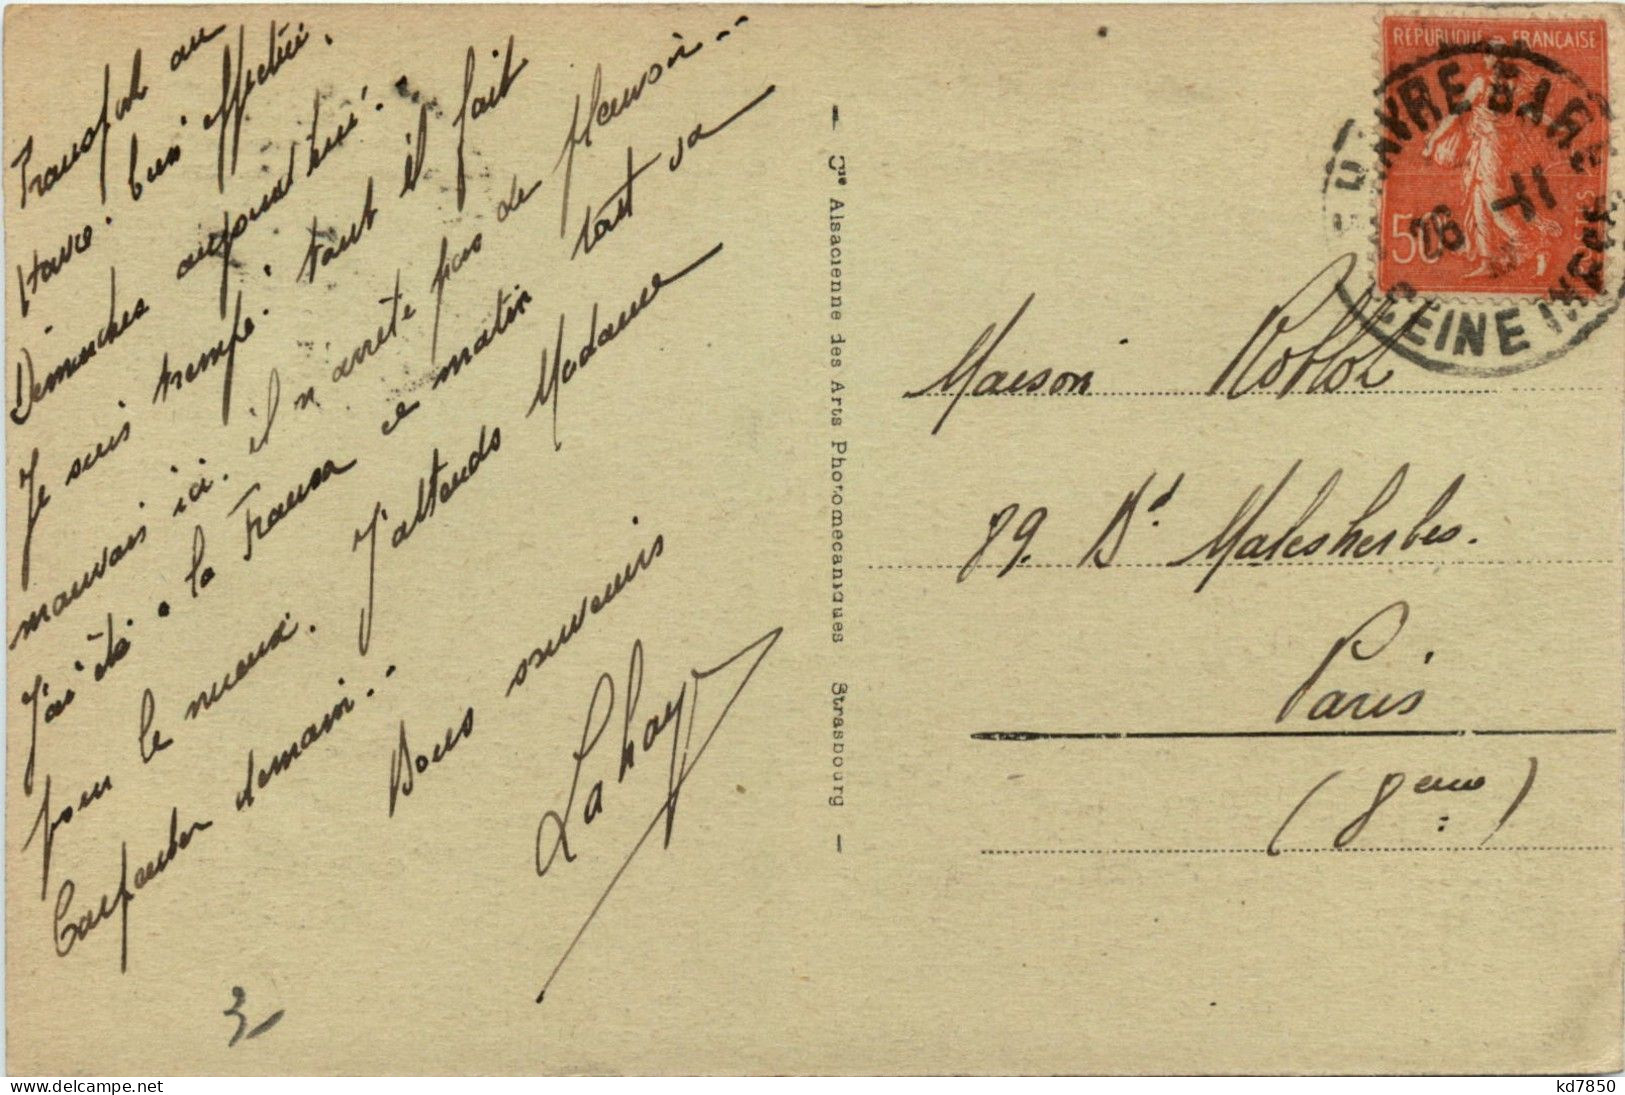 Transfert au
Havre. bien effectué.
Démarches aujourd'hui. -
Je suis trempé. tant il fait
mauvais ici. il n'arrête pas de pleuvoir. -
J'ai été à la Transa ce matin tout va
pour le mieux. J'attends Madame
Carpentier demain. -
Bons souvenirs
Lahaye
3
- Cie Alsacienne des Arts Photomécaniques Strasbourg -
RÉPUBLIQUE FRANÇAISE
50
LE HAVRE GARE
26 -11
SEINE INFRE
Maison Roblot
89. Bd. Malesherbes.
Paris
(8eme)
kd7850